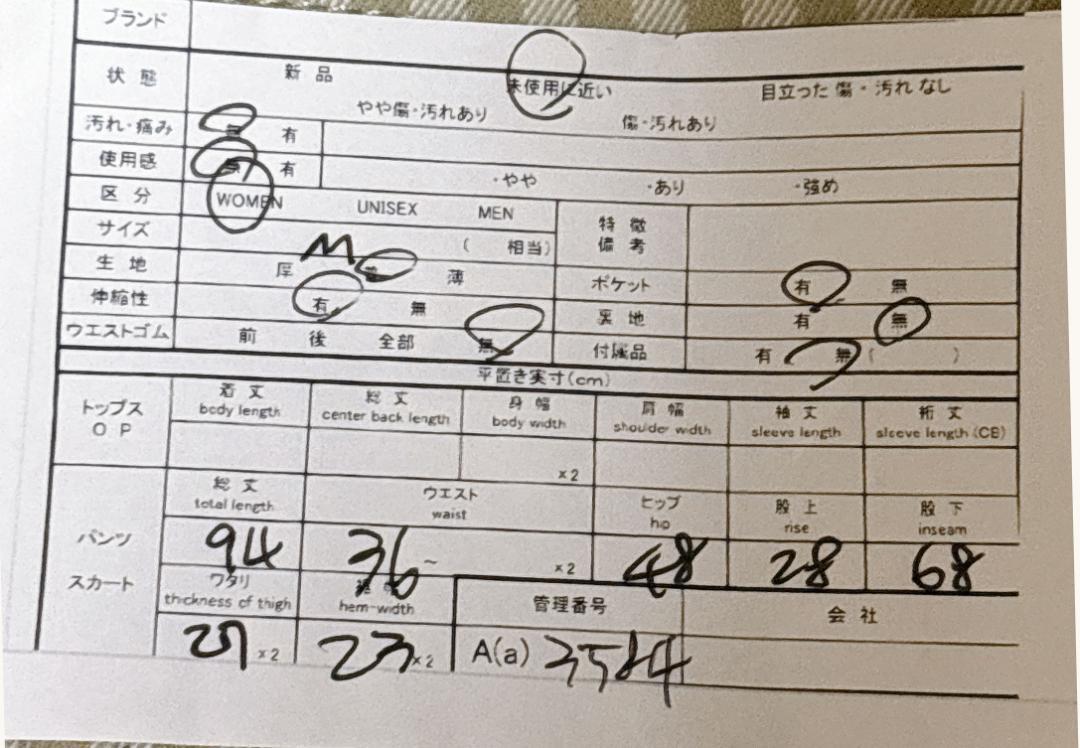 ブランド
状態 新品 未使用に近い 目立った傷・汚れなし
やや傷・汚れあり 傷・汚れあり
汚れ・痛み 無 有
使用感 無 有 ・やや ・あり ・強め
区分 WOMEN UNISEX MEN 特徴
備考
サイズ M ( 相当)
生地 厚 普 薄 ポケット 有 無
伸縮性 有 無 裏地 有 無
ウエストゴム 前 後 全部 無 付属品 有 無 ( )
平置き実寸(cm)
トップス 着丈 総丈 身幅 肩幅 袖丈 裄丈
OP body length center back length body width shoulder width sleeve length sleeve length (CB)
×2
総丈 ウエスト ヒップ 股上 股下
total length waist hip rise inseam
パンツ 94 36~ ×2 48 28 68
スカート ワタリ 裾幅 管理番号 会社
thickness of thigh hem-width
27 ×2 23 ×2 A(a) 3584